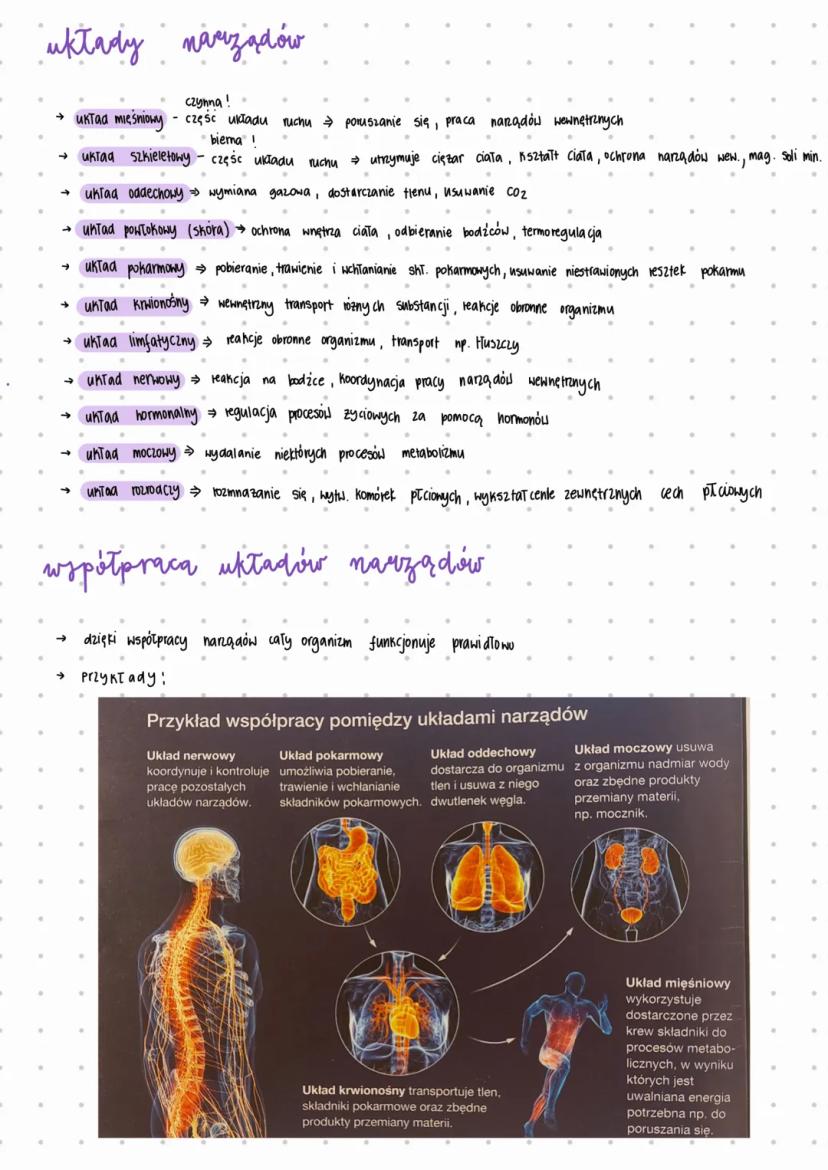 układy narządów
czynna!
→ układ mięśniowy - część układu ruchu ⇒ poruszanie się, praca narządów wewnętrznych
bierna!
→ układ szkieletowy - część układu ruchu ⇒ utrzymuje ciężar ciała, kształt ciała, ochrona narządów wew., mag. soli min.
→ układ oddechowy ⇒ wymiana gazowa, dostarczanie tlenu, usuwanie CO2
→ układ powłokowy (skóra) → ochrona wnętrza ciała, odbieranie bodźców, termoregulacja
→ układ pokarmowy ⇒ pobieranie, trawienie i wchłanianie skł. pokarmowych, usuwanie niestrawionych resztek pokarmu
→ układ krwionośny ⇒ wewnętrzny transport różnych substancji, reakcje obronne organizmu
→ układ limfatyczny ⇒ reakcje obronne organizmu, transport np. tłuszczy
→ układ nerwowy ⇒ reakcja na bodźce, koordynacja pracy narządów wewnętrznych
→ układ hormonalny ⇒ regulacja procesów życiowych za pomocą hormonów
→ układ moczowy ⇒ wydalanie niektórych procesów metabolizmu
→ układ rozrodczy ⇒ rozmnażanie się, wytw. komórek płciowych, wykształcenie zewnętrznych cech płciowych
współpraca układów narządów
→ dzięki współpracy narządów cały organizm funkcjonuje prawidłowo
→ przykłady:
Przykład współpracy pomiędzy układami narządów
Układ nerwowy
koordynuje i kontroluje
pracę pozostałych
układów narządów.
Układ pokarmowy
umożliwia pobieranie,
trawienie i wchłanianie
składników pokarmowych.
Układ oddechowy
dostarcza do organizmu
tlen i usuwa z niego
dwutlenek węgla.
Układ moczowy usuwa
z organizmu nadmiar wody
oraz zbędne produkty
przemiany materii,
np. mocznik.
Układ krwionośny transportuje tlen,
składniki pokarmowe oraz zbędne
produkty przemiany materii.
Układ mięśniowy
wykorzystuje
dostarczone przez
krew składniki do
procesów metabo-
licznych, w wyniku
których jest
uwalniana energia
potrzebna np. do
poruszania się.